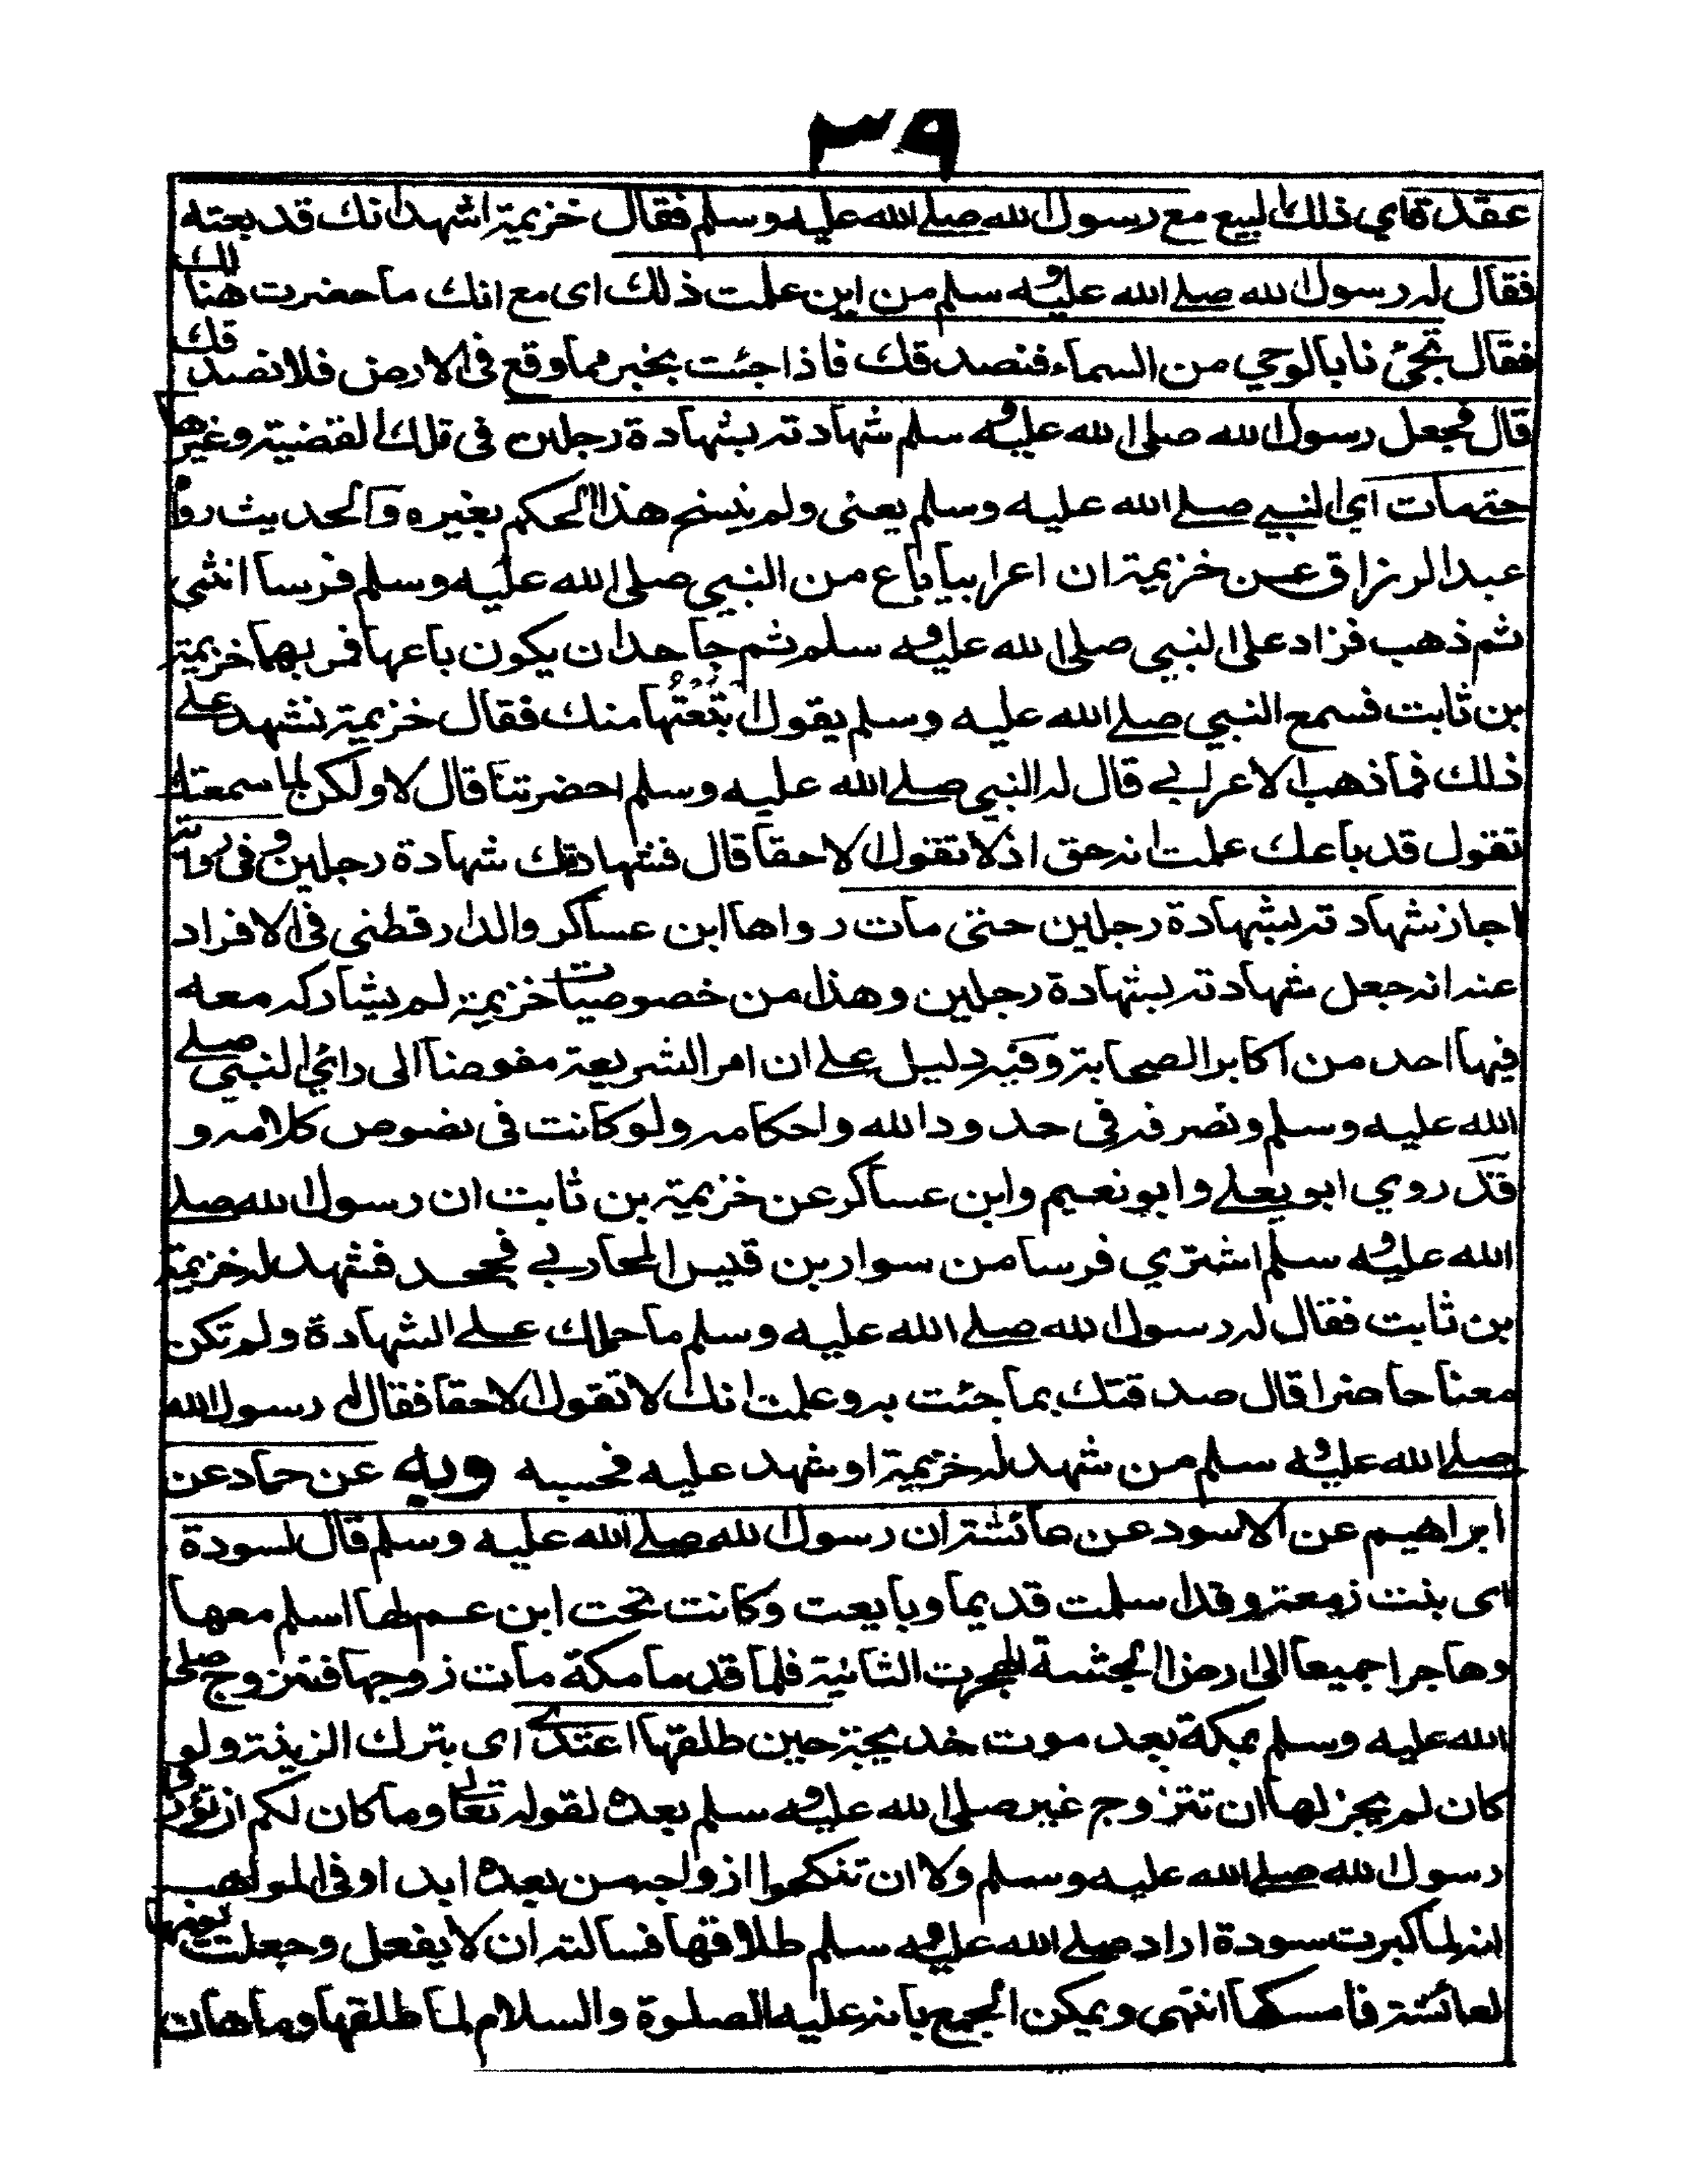 ٣٩
عقدة اي ذلك البيع مع رسول الله صلى الله عليه وسلم فقال خزيمة اشهد انك قد بعته
فقال له رسول الله صلى الله عليه وسلم من اين علمت ذلك اى مع انك ما حضرت هنالك
فقال تجئ نا بالوحي من السماء فنصدقك فاذا جئت بخبر مما وقع فى الارض فلا نصدقك
قال فجعل رسول الله صلى الله عليه وسلم شهادته بشهادة رجلين فى تلك القضية وغيرها
حتى مات اي النبي صلى الله عليه وسلم يعنى ولم ينسخ هذا الحكم بغيره والحديث رواه
عبد الرزاق عن خزيمة ان اعرابيا باع من النبي صلى الله عليه وسلم فرسا انثى
ثم ذهب فزاد على النبي صلى الله عليه وسلم ثم جاحد ان يكون باعها فمر بهما خزيمة
بن ثابت فسمع النبي صلى الله عليه وسلم يقول بتعتها منك فقال خزيمة نشهد على
ذلك فما ذهب الاعرابي قال له النبي صلى الله عليه وسلم احضرتنا قال لا ولكن لما سمعتك
تقول قد باعك علمت انه حق اذ لا تقول الا حقا قال فشهادتك شهادة رجلين وفى رواية
اجاز شهادته بشهادة رجلين حتى مات رواها ابن عساكر والدارقطنى فى الافراد
عنه انه جعل شهادته بشهادة رجلين وهذا من خصوصيات خزيمة لم يشاركه معه
فيها احد من اكابر الصحابة وفيه دليل على ان امر الشريعة مفوضا الى رائي النبي صلى
الله عليه وسلم وتصرفه في حدود الله واحكامه ولو كانت فى نصوص كلامه و
قد روي ابو يعلى وابو نعيم وابن عساكر عن خزيمة بن ثابت ان رسول الله صلى
الله عليه وسلم اشتري فرسا من سوار بن قيس المحاربي فجحد فشهد له خزيمة
بن ثابت فقال له رسول الله صلى الله عليه وسلم ما حملك على الشهادة ولم تكن
معنا حاضرا قال صدقتك بما جئت به وعلمت انك لا تقول الا حقا فقال له رسول الله
صلى الله عليه وسلم من شهد له خزيمة او شهد عليه فحسبه وبه عن حماد عن
ابراهيم عن الاسود عن عائشة ان رسول الله صلى الله عليه وسلم قال لسودة
اى بنت زمعة وقد اسلمت قديما وبايعت وكانت تحت ابن عم لها اسلم معها
وهاجرا جميعا الى ارض الحبشة الهجرت الثانية فلما قدما مكة مات زوجها فتزوج صلى
الله عليه وسلم بمكة بعد موت خديجة حين طلقها اعتدى اى بترك الزينة ولو
كان لم يجز لها ان تتزوج غيره صلى الله عليه وسلم بعده لقوله تعالى وما كان لكم ان تؤذوا
رسول الله صلى الله عليه وسلم ولا ان تنكحوا ازواجه من بعده ابدا وفى المواهب
انه لما كبرت سودة اراد صلى الله عليه وسلم طلاقها فسالته ان لا يفعل وجعلت يومها
لعائشة فامسكها انتهى ويمكن الجمع بانه عليه الصلوة والسلام لما طلقها وما هان